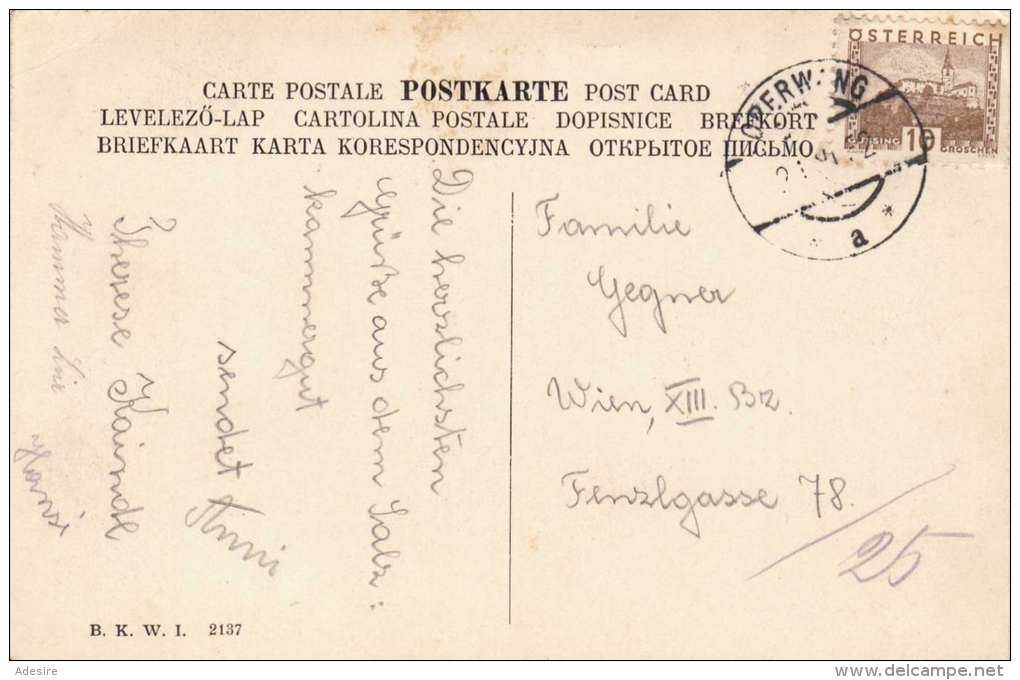 CARTE POSTALE POSTKARTE POST CARD
LEVELEZŐ-LAP CARTOLINA POSTALE DOPISNICE BREFKORT
BRIEFKAART KARTA KORESPONDENCYJNA ОТКРЫТОЕ ПИСЬМО
ÖSTERREICH
GÜSSING 10 GROSCHEN
OBERWANG
a
Die herzlichsten
Grüße aus dem Salz:
kammergut
sendet Anni
Therese Kaindl
Hansi
Familie
Gegner
Wien, XIII. Bz.
Fenzlgasse 78.
/25
B. K. W. I. 2137
Adesire
www.delcampe.net